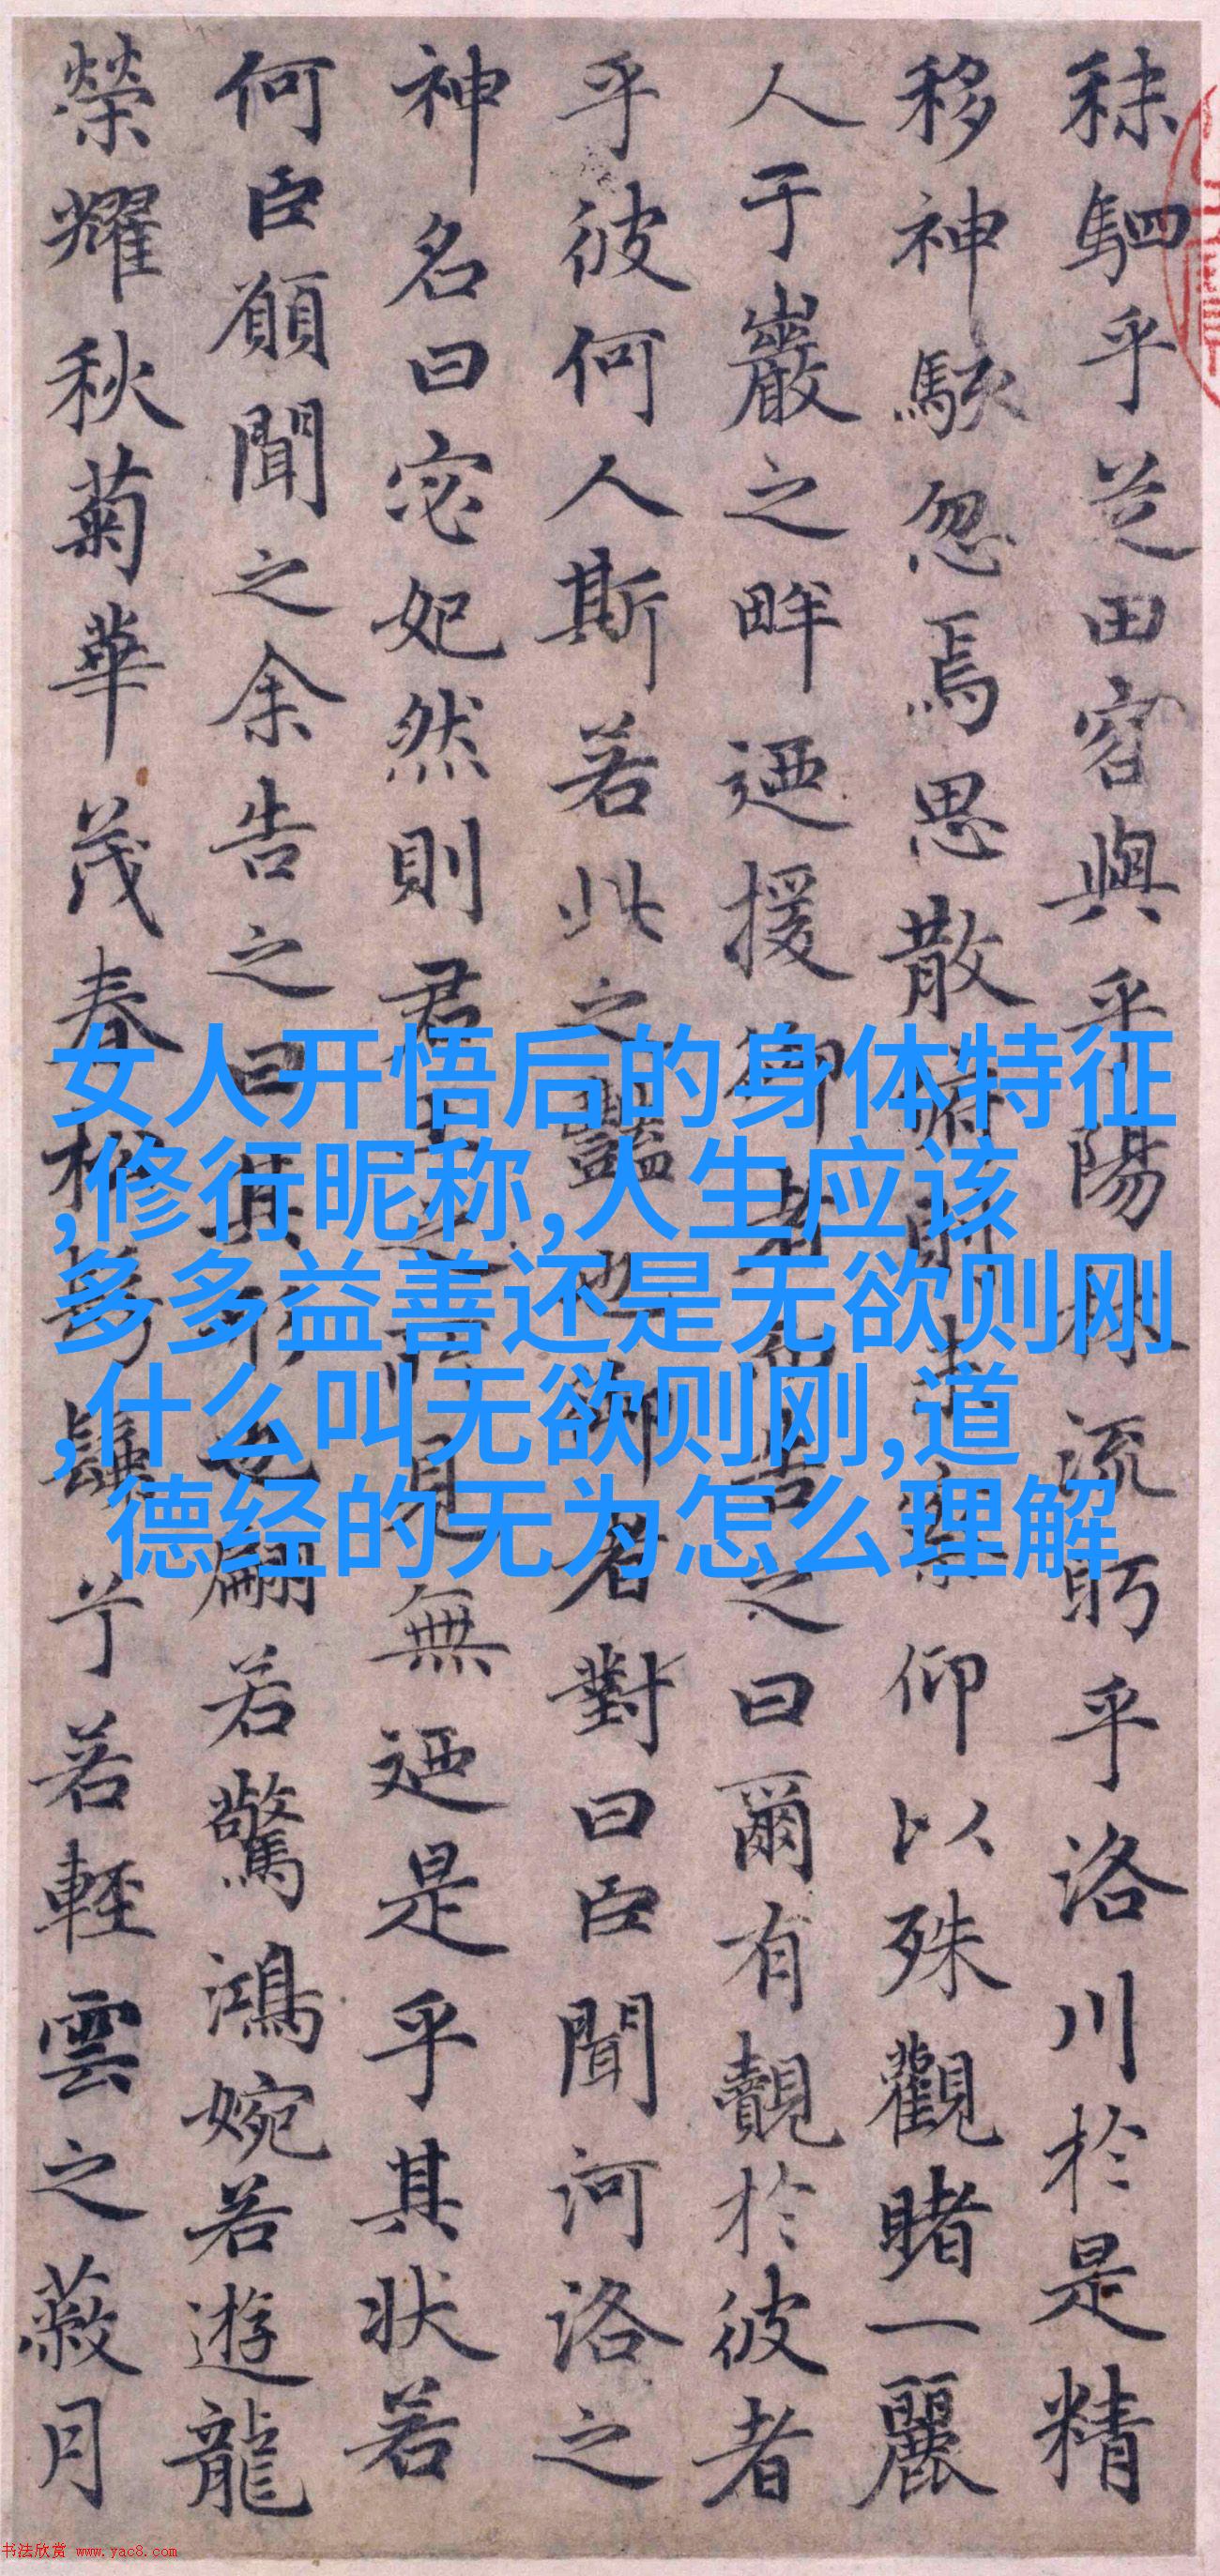 秣駟乎芝田容與乎陽林流眄乎洛川於是精
移神駭忽焉思散俯則未察仰以殊觀睹一麗
人于巖之畔迺援御者而告之曰爾有覿於彼者
乎彼何人斯若此之豔也御者對曰臣聞河洛之
神名曰宓妃然則君王之所見無迺是乎其狀若
何臣願聞之余告之曰其形也翩若驚鴻婉若遊龍
榮耀秋菊華茂春松髣髴兮若輕雲之蔽月
女人开悟后的身体特征
,修行昵称,人生应该
多多益善还是无欲则刚
,什么叫无欲则刚,道
德经的无为怎么理解
书法欣赏 www.yac8.com